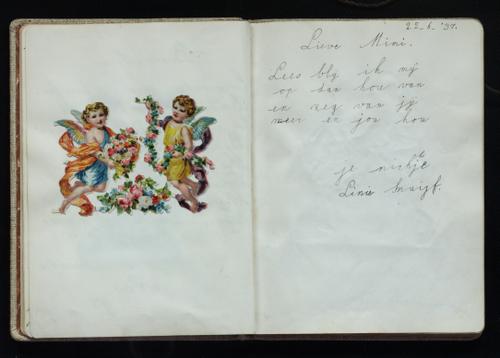 22-6-'37.
Lieve Mini.
Lees blij ik mij
op dan hou van
en zeg van jij
weer en jou hou
je nichtje
Linie